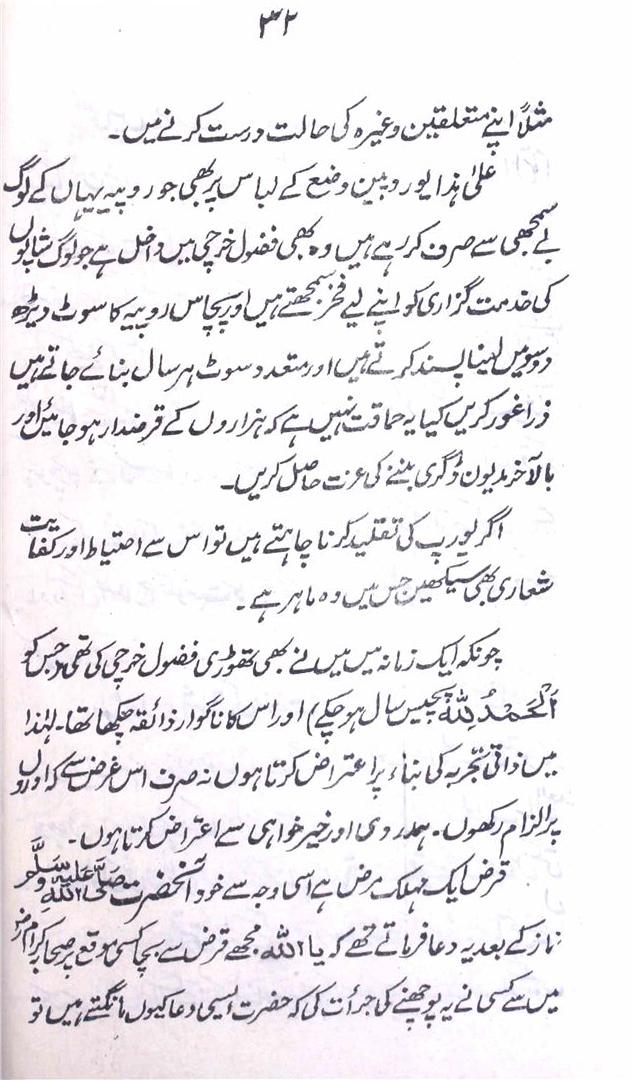 ۳۲
مثلاً اپنے متعلقین وغیرہ کی حالت درست کرنے میں۔
علیٰ ہذا یوروپین وضع کے لباس پر بھی جو روپیہ یہاں کے لوگ
بے سمجھی سے صرف کر رہے ہیں وہ بھی فضول خرچی میں داخل ہے جو لوگ شاپوں
کی خدمت گزاری کو اپنے لیے فخر سمجھتے ہیں اور پچاس روپیہ کا سوٹ دیڑھ
دو سو میں لینا پسند کرتے ہیں اور متعدد سوٹ ہر سال بنائے جاتے ہیں
ذرا غور کریں کیا یہ حماقت نہیں ہے کہ ہزاروں کے قرضدار ہو جائیں اور
بالآخر مدیون ڈگری بننے کی عزت حاصل کریں۔
اگر یورپ کی تقلید کرنا چاہتے ہیں تو اس سے احتیاط اور کفایت
شعاری بھی سیکھیں جس میں وہ ماہر ہے۔
چونکہ ایک زمانہ میں میں نے بھی تھوڑی فضول خرچی کی تھی (جس کو
اَلْحَمْدُ لِلّٰہ پچیس سال ہو چکے) اور اس کا ناگوار ذائقہ چکھا تھا۔ لہٰذا
میں ذاتی تجربہ کی بناء پر اعتراض کرتا ہوں نہ صرف اس غرض سے کہ اوروں
پر الزام رکھوں۔ ہمدردی اور خیر خواہی سے اعتراض کرتا ہوں۔
قرض ایک مہلک مرض ہے اسی وجہ سے خود آنحضرت صَلَّی اللہُ عَلَیْہِ وَسَلَّمَ
نماز کے بعد یہ دعا فرماتے تھے کہ یا اللہ مجھے قرض سے بچا کسی موقع پر صحابہ کرامؓ
میں سے کسی نے یہ پوچھنے کی جرأت کی کہ حضرت ایسی دعا کیوں مانگتے ہیں تو